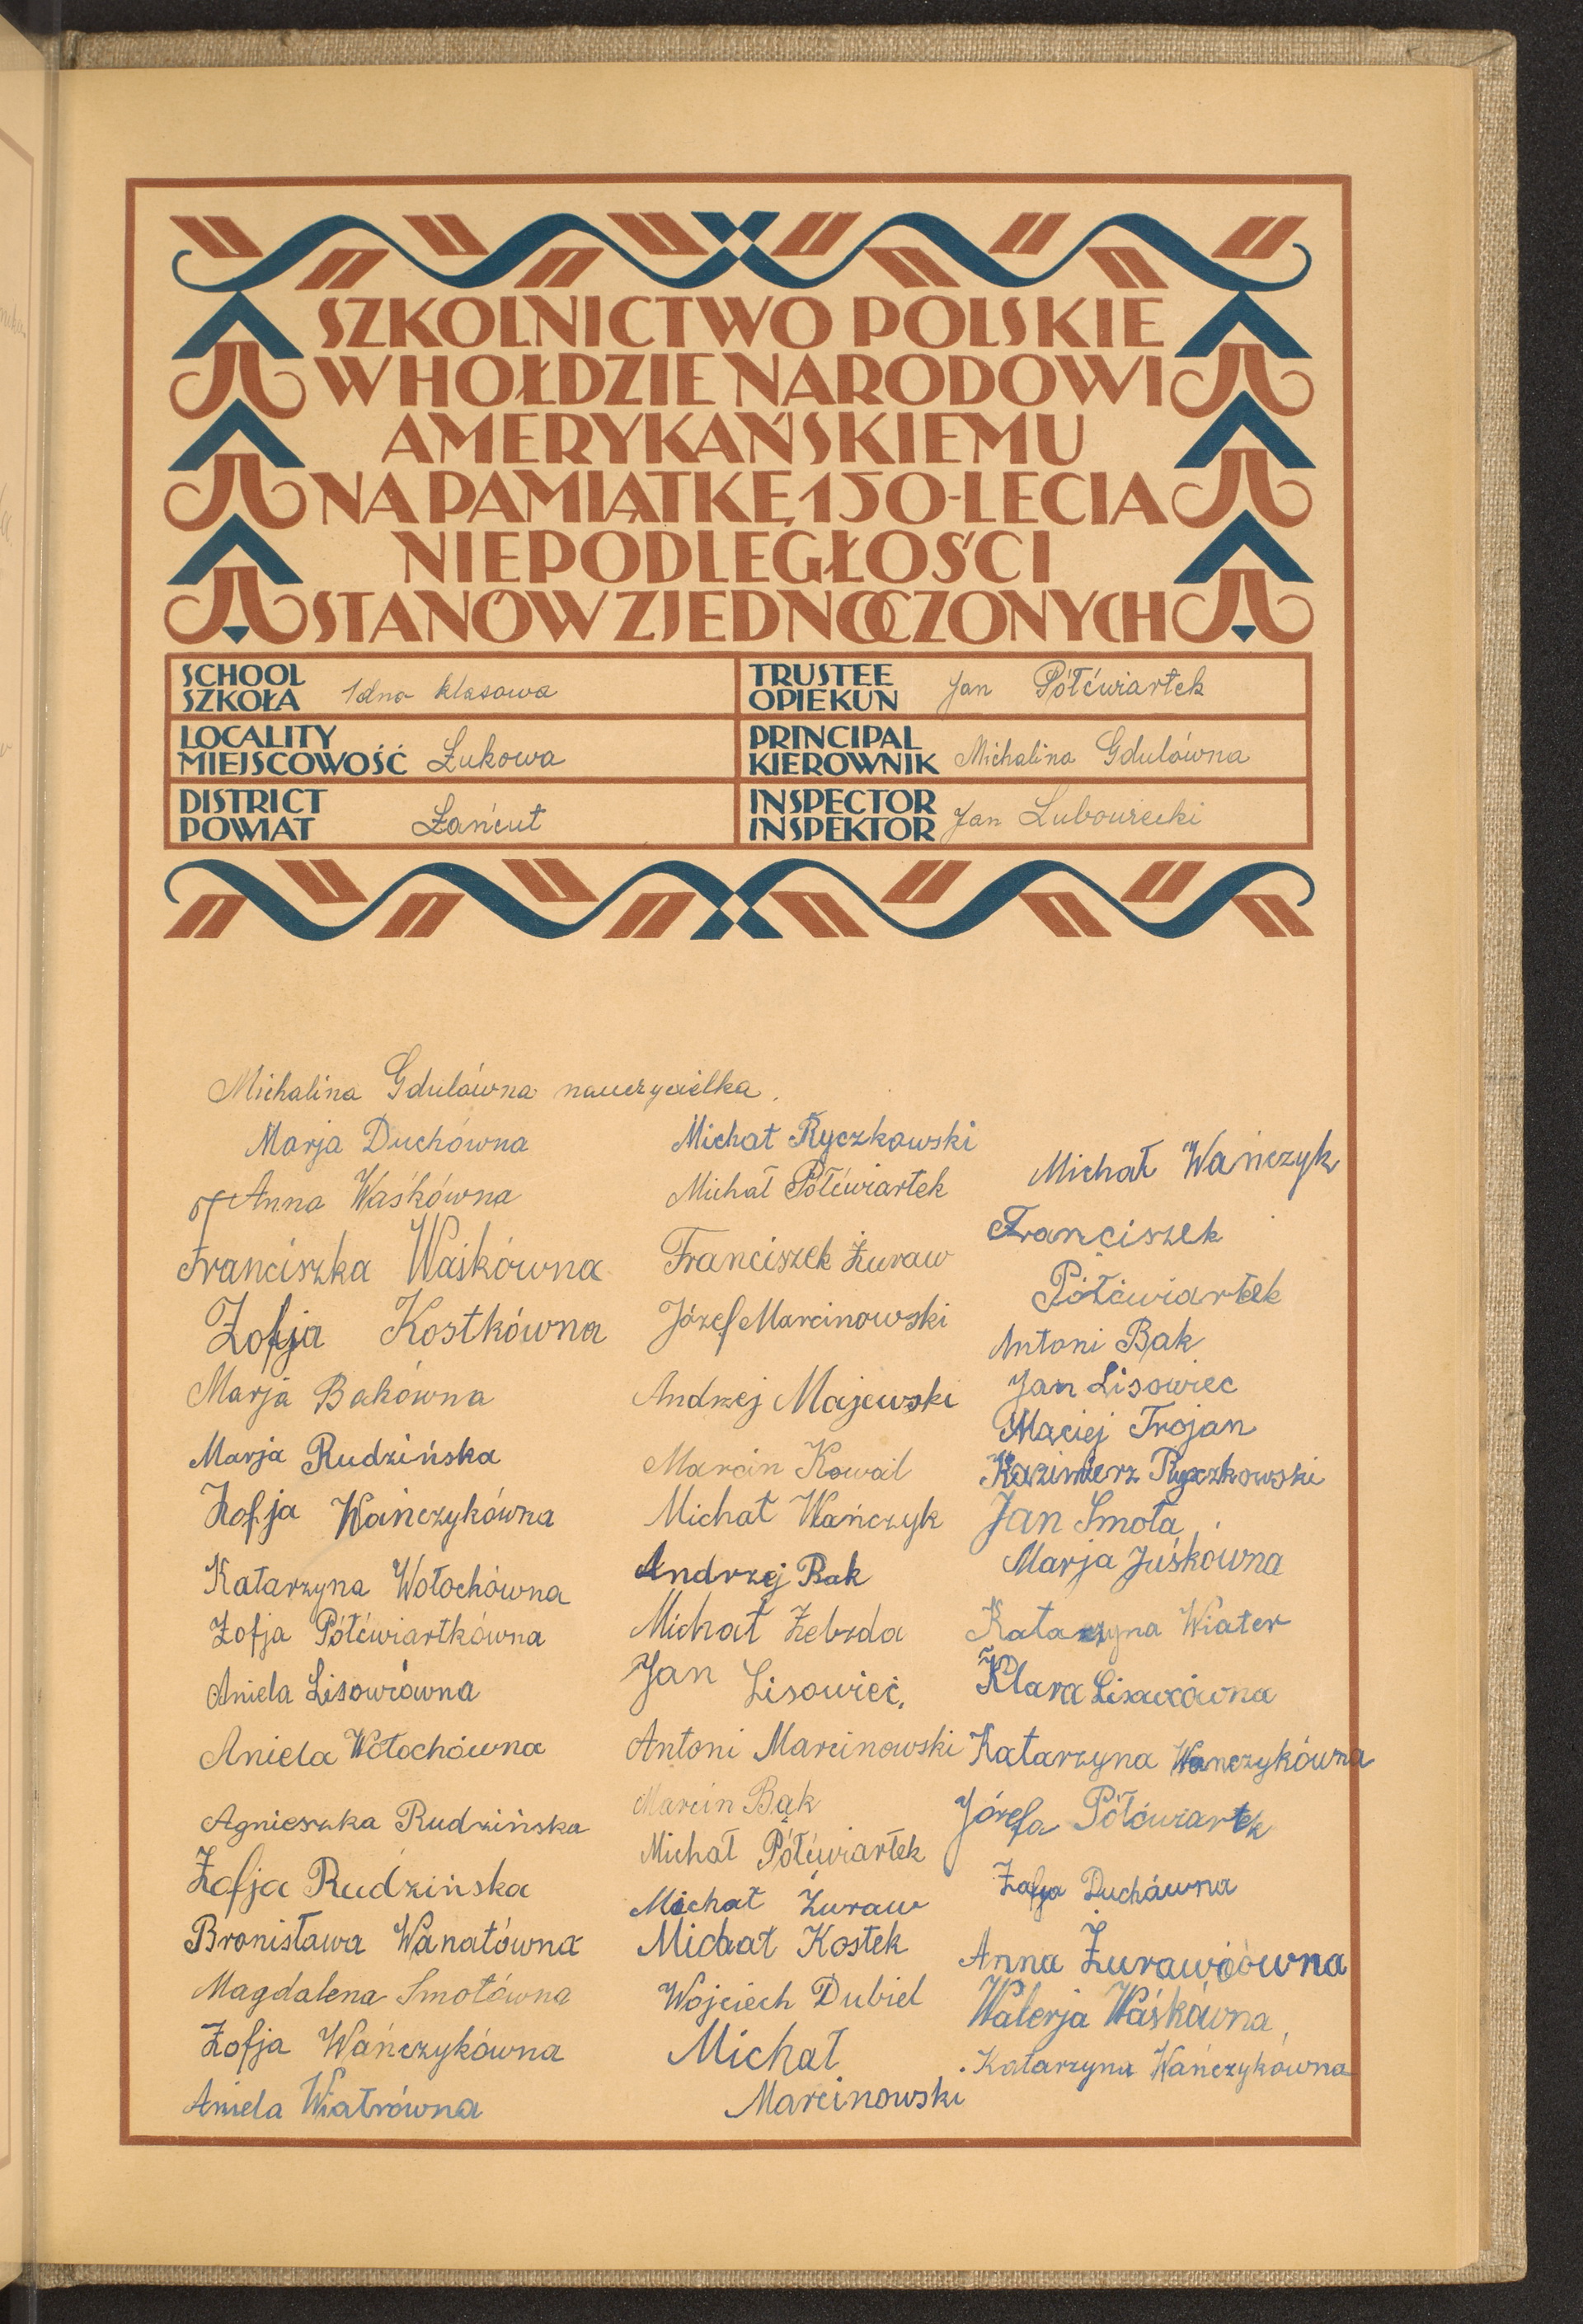 SZKOLNICTWO POLSKIE
W HOŁDZIE NARODOWI
AMERYKAŃSKIEMU
NA PAMIĄTKĘ 150-LECIA
NIEPODLEGŁOŚCI
STANÓW ZJEDNOCZONYCH
SCHOOL
SZKOŁA 1dno klasowa
TRUSTEE
OPIEKUN Jan Półćwiartek
LOCALITY
MIEJSCOWOŚĆ Łukowa
PRINCIPAL
KIEROWNIK Michalina Gdulówna
DISTRICT
POWIAT Łańcut
INSPECTOR
INSPEKTOR Jan Lubowiecki
Michalina Gdulówna nauczycielka.
Marja Duchówna
Anna Waśkówna
Franciszka Waśkówna
Zofja Kostkówna
Marja Bakówna
Marja Rudzińska
Zofja Wańczykówna
Katarzyna Wołochówna
Zofja Półćwiartkówna
Aniela Lisowcówna
Aniela Wołochówna
Agnieszka Rudzińska
Zofja Rudzińska
Bronisława Wanatówna
Magdalena Smotówna
Zofja Wańczykówna
Aniela Wiatrówna
Michat Ryczkowski
Michał Półćwiartek
Franciszek Żuraw
Józef Marcinowski
Andrzej Majewski
Marcin Kowal
Michat Wańczyk
Andrzej Bak
Michat Żebzda
Jan Lisowiec.
Antoni Marcinowski
Marcin Bąk
Michał Półćwiartek
Michat Żuraw
Michał Kostek
Wojciech Dubiel
Michał
Marcinowski
Michał Wańczyk
Franciszek
Półćwiartek
Antoni Bąk
Jan Lisowiec
Maciej Trojan
Kazimierz Ryczkowski
Jan Smoła
Marja Juśkówna
Katarzyna Wiater
Klara Lisowcówna
Katarzyna Wanczykówna
Józefa Półćwiartek
Zofja Duchówna
Anna Żurawiówna
Walerja Waśkówna
Katarzyna Wańczykówna